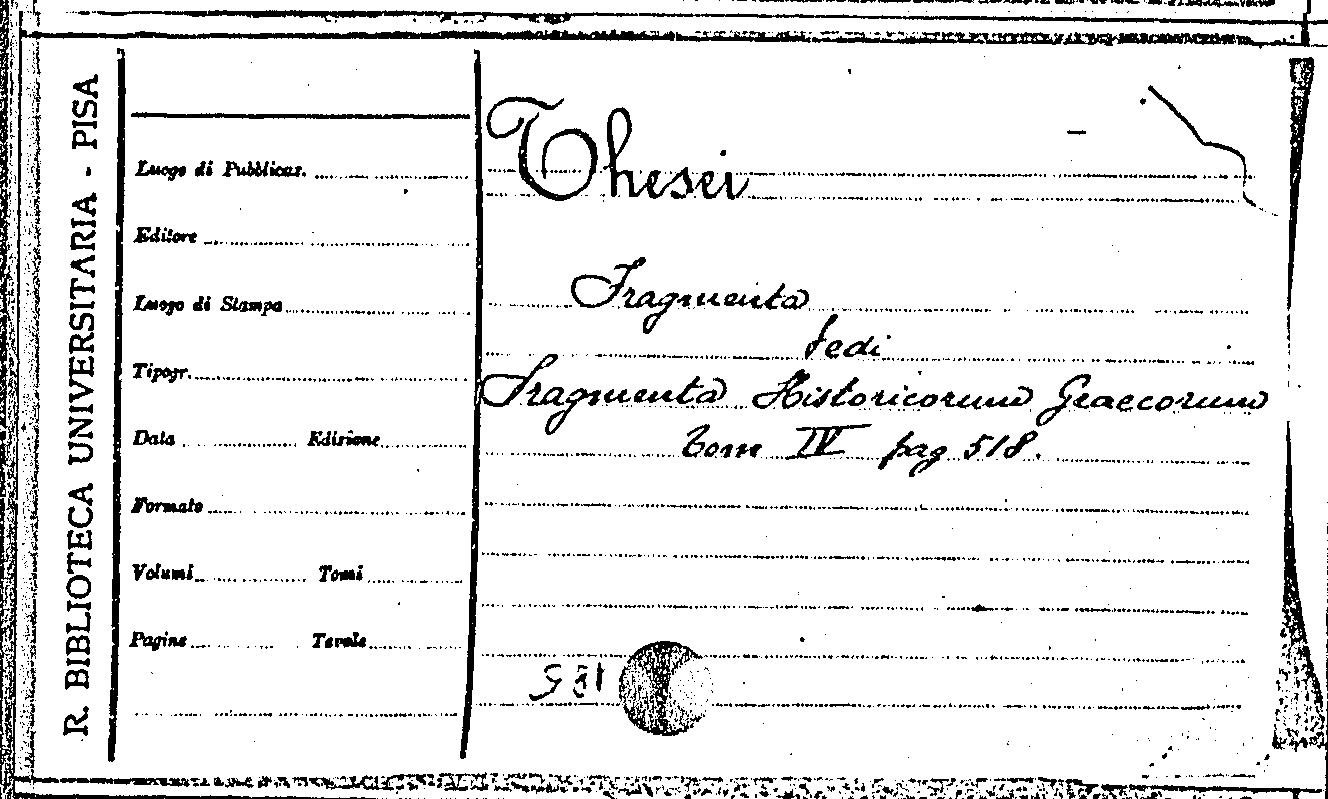 R. BIBLIOTECA UNIVERSITARIA - PISA
Luogo di Pubblicaz.
Editore
Luogo di Stampa
Tipogr.
Data Edizione
Formato
Volumi Tomi
Pagine Tavole
Thesei
Fragmenta
Vedi
Fragmenta Historicorum Graecorum
Tom IV pag 518.